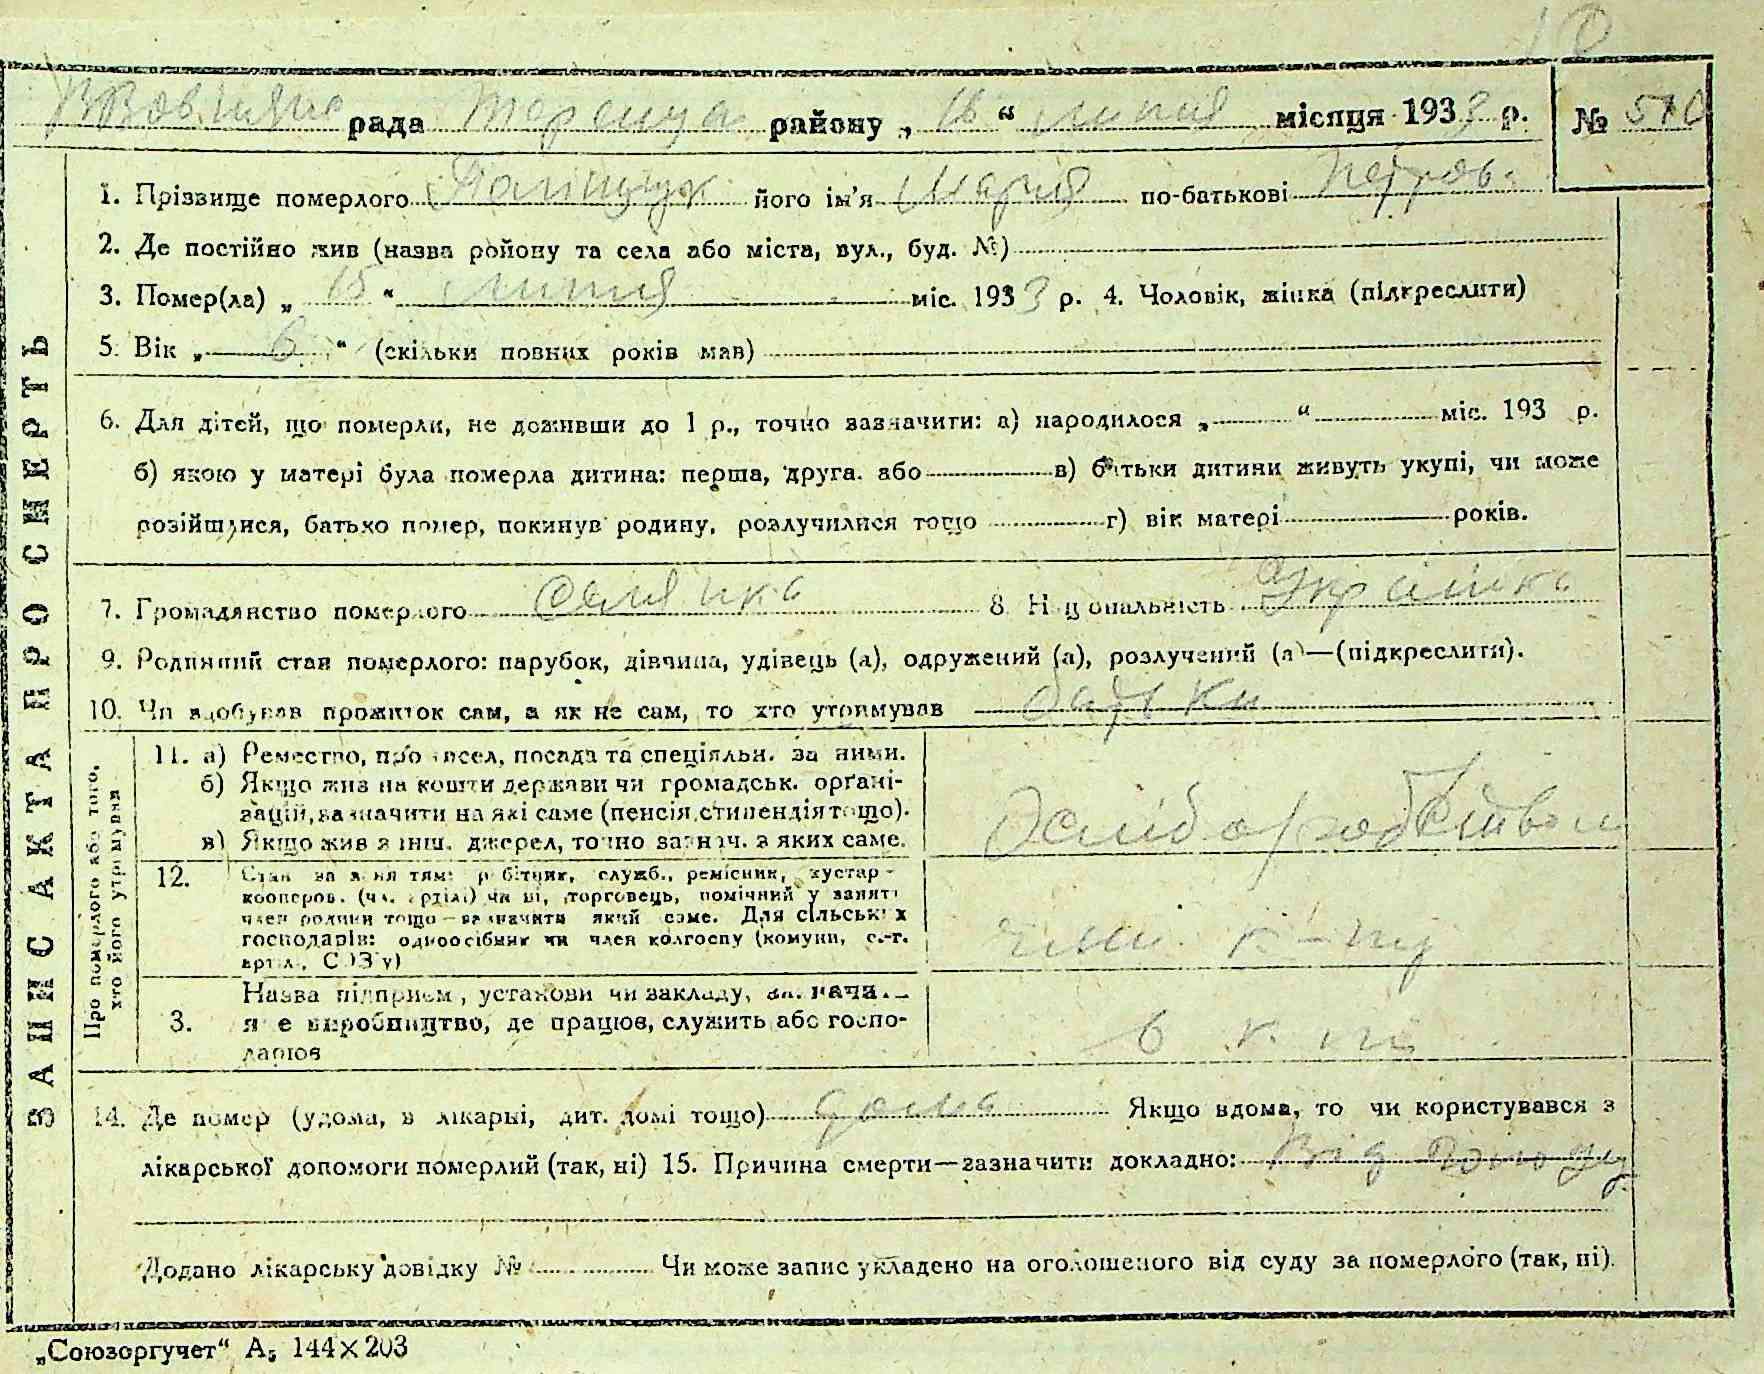 рада района „ 16 “ липня місяця 1933 р. № 510
1. Прізвище померлого Поліщук його ім'я Марія по-батькові Петров.
2. Де постійно жив (назва району та села або міста, вул., буд. №)
3. Помер(ла) „ 15 “ липня міс. 1933 р. 4. Чоловік, жінка (підкреслити)
5. Вік „ 6 “ (скільки повних років мав)
6. Для дітей, що померли, не доживши до 1 р., точно зазначити: а) народилося „ “ міс. 193 р.
б) якою у матері була померла дитина: перша, друга. або в) батьки дитини живуть укупі, чи може
розійшлися, батько помер, покинув родину, розлучилися тощо г) вік матері років.
7. Громадянство померлого селянка 8. Національність Українка
9. Родинний стан померлого: парубок, дівчина, удівець (а), одружений (а), розлучений (а)—(підкреслити).
10. Чи здобував прожиток сам, а як не сам, то хто утримував батьки
ЗАПИС АКТА ПРО СМЕРТЬ
Про померлого або того,
хто його утримував
11. а) Ремество, промисел, посада та спеціяльн. за ними.
б) Якщо жив на кошти держави чи громадськ. орґані-
зацій, зазначити на які саме (пенсія, стипендія тощо).
в) Якщо жив з інш. джерел, точно зазнач. з яких саме.
хліборобством
12. Стан за заняттям: робітник, служб., ремісник, кустар-
кооперов. (чл. артілі) чи ні, торговець, помічний у занятті
член родини тощо—зазначити який саме. Для сільських
господарів: одноосібник чи член колгоспу (комуни, с.-г.
артіл., СОЗ'у)
член к-пу
Назва підприєм., установи чи закладу, зазначи.—
3. яке виробництво, де працюв, служить або госпо-
дарюв
в к-пі
14. Де помер (удома, в лікарні, дит. домі тощо) дома Якщо вдома, то чи користувався з
лікарської допомоги померлий (так, ні) 15. Причина смерти—зазначити докладно: Від голоду
Додано лікарську довідку № Чи може запис укладено на оголошеного від суду за померлого (так, ні).
„Союзоргучет“ А5 144×203